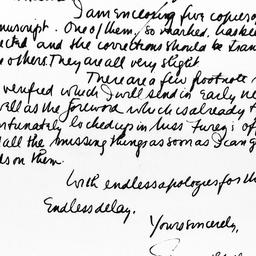 I am enclosing five copies of
nuscript. One of them, so marked, has been
ected and the corrections should be tran
e others. They are all very slight.
There are a few footnote
verified which I will send in early ne
ell as the foreword which is already t
fortunately locked up in Miss Furey's of
all the missing things as soon as I can g
ds on them.
With endless apologies for th
Endless delay.
Yours sincerely,